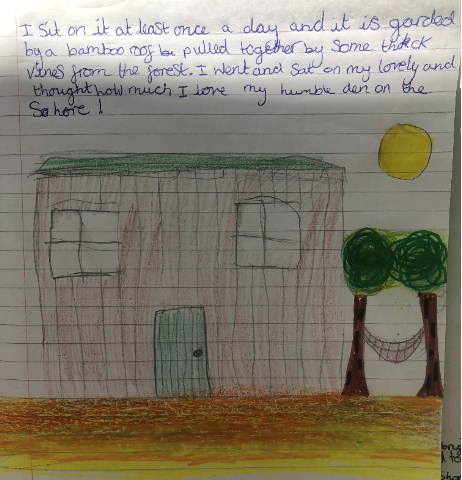 I Sit on it at least once a day and it is garded
by a bamboo roof be pulled together by some thick
vines from the forest. I went and sat on my lovely and
thought how much I love my humble den on the
Sohore !